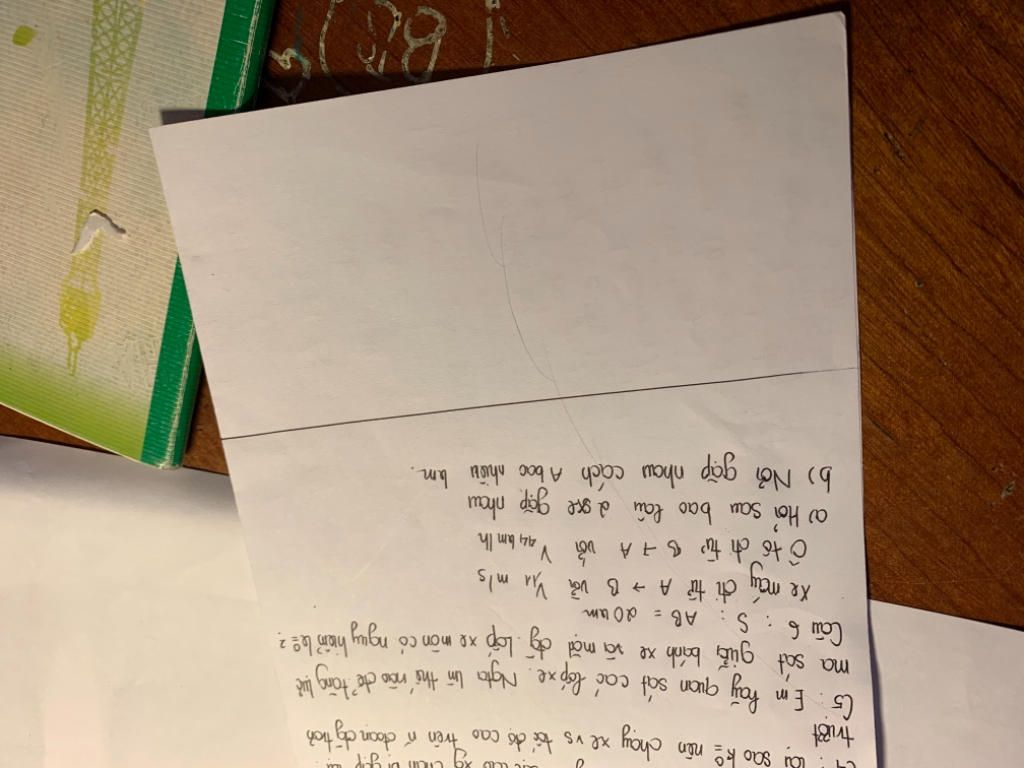 C4: Tại sao k° nên chạy xe vs tốc độ cao trên n~ đoạn đg trơn
trượt
C5: Em hãy quan sát các lốp xe. Ngta làm thế nào để tăng lực
ma sát giữa bánh xe và mặt đg. Lốp xe mòn có nguy hiểm k°?
Câu 6: S: AB = 20 km
xe máy đi từ A → B với V 11 m/s
Ô tô đi từ B → A với V 44 km/h
a) Hỏi sau bao lâu 2 xe gặp nhau
b) Nơi gặp nhau cách A bao nhiêu km.